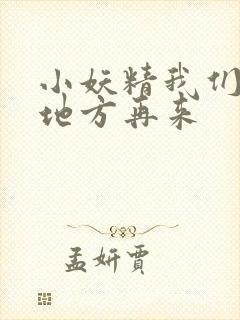 小妖精我们
地方再来
孟妍贾